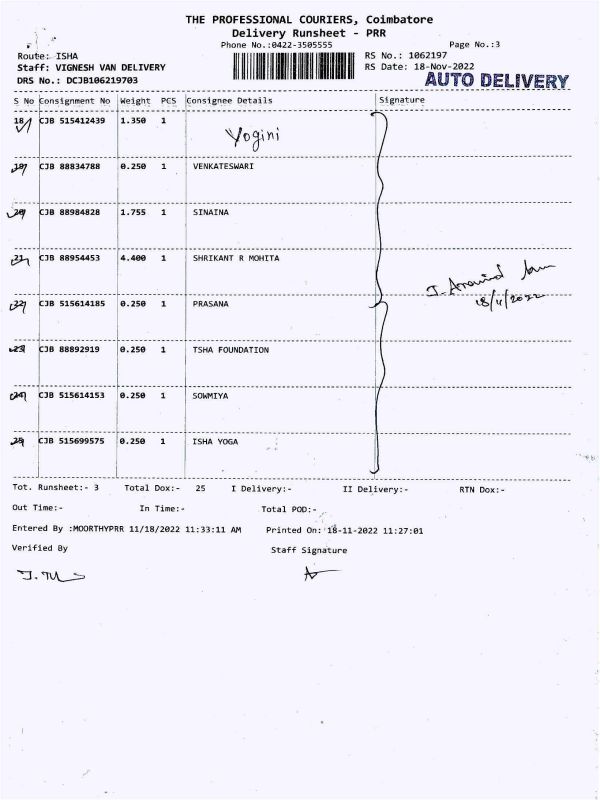 THE PROFESSIONAL COURIERS, Coimbatore
Delivery Runsheet - PRR
Phone No.:0422-3505555
Page No.:3
Route: ISHA
RS No.: 1062197
Staff: VIGNESH VAN DELIVERY
RS Date: 18-Nov-2022
DRS No.: DCJB106219703
AUTO DELIVERY
S No Consignment No Weight PCS Consignee Details Signature
18 CJB 515412439 1.350 1
Yogini
19 CJB 88834788 0.250 1 VENKATESWARI
20 CJB 88984828 1.755 1 SINAINA
21 CJB 88954453 4.400 1 SHRIKANT R MOHITA
J. Aravind
18/11/2022
22 CJB 515614185 0.250 1 PRASANA
23 CJB 88892919 0.250 1 TSHA FOUNDATION
24 CJB 515614153 0.250 1 SOWMIYA
25 CJB 515699575 0.250 1 ISHA YOGA
Tot. Runsheet:- 3 Total Dox:- 25 I Delivery:- II Delivery:- RTN Dox:-
Out Time:- In Time:- Total POD:-
Entered By :MOORTHYPRR 11/18/2022 11:33:11 AM Printed On: 18-11-2022 11:27:01
Verified By Staff Signature